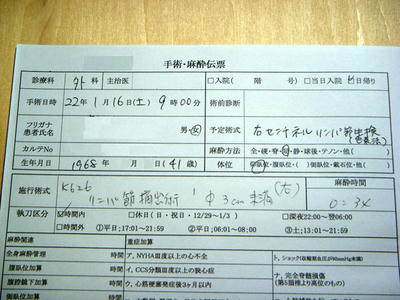 手術・麻酔伝票
診療科 外 科 主治医 □入院( 階 号) □当日入院 日帰り
手術日時 22年 1月 16日(土) 9時00分 術前診断
フリガナ
患者氏名 男・女 予定術式 右センチネルリンパ節生検
カルテNo 麻酔方法 全・硬・脊・局・静・球後・テノン・他( )
生年月日 1968年 月 日 (41歳) 体位 仰臥位・腹臥位・( )側臥位・截石位・他( )
施行術式 K626 リンパ節摘出術 3cm未満 (右) 麻酔時間
執刀区分 時間内 □休日(日・祝日・12/29~1/3) □深夜22:00~翌06:00
□時間外 ①平日:17:01~21:59 ②平日:06:01~08:00 ③土:13:01~21:59
麻酔関連 重症加算
全身麻酔管理 時間 ア、NYHAⅢ度以上の心不全
腹臥位加算 時間 イ、CCS分類Ⅲ度以上の狭心症 ナ、完全脊髄損傷
腹腔鏡下加算 時間 ウ、心筋梗塞発症後3ヶ月以内 (第5胸椎より高位のもの)